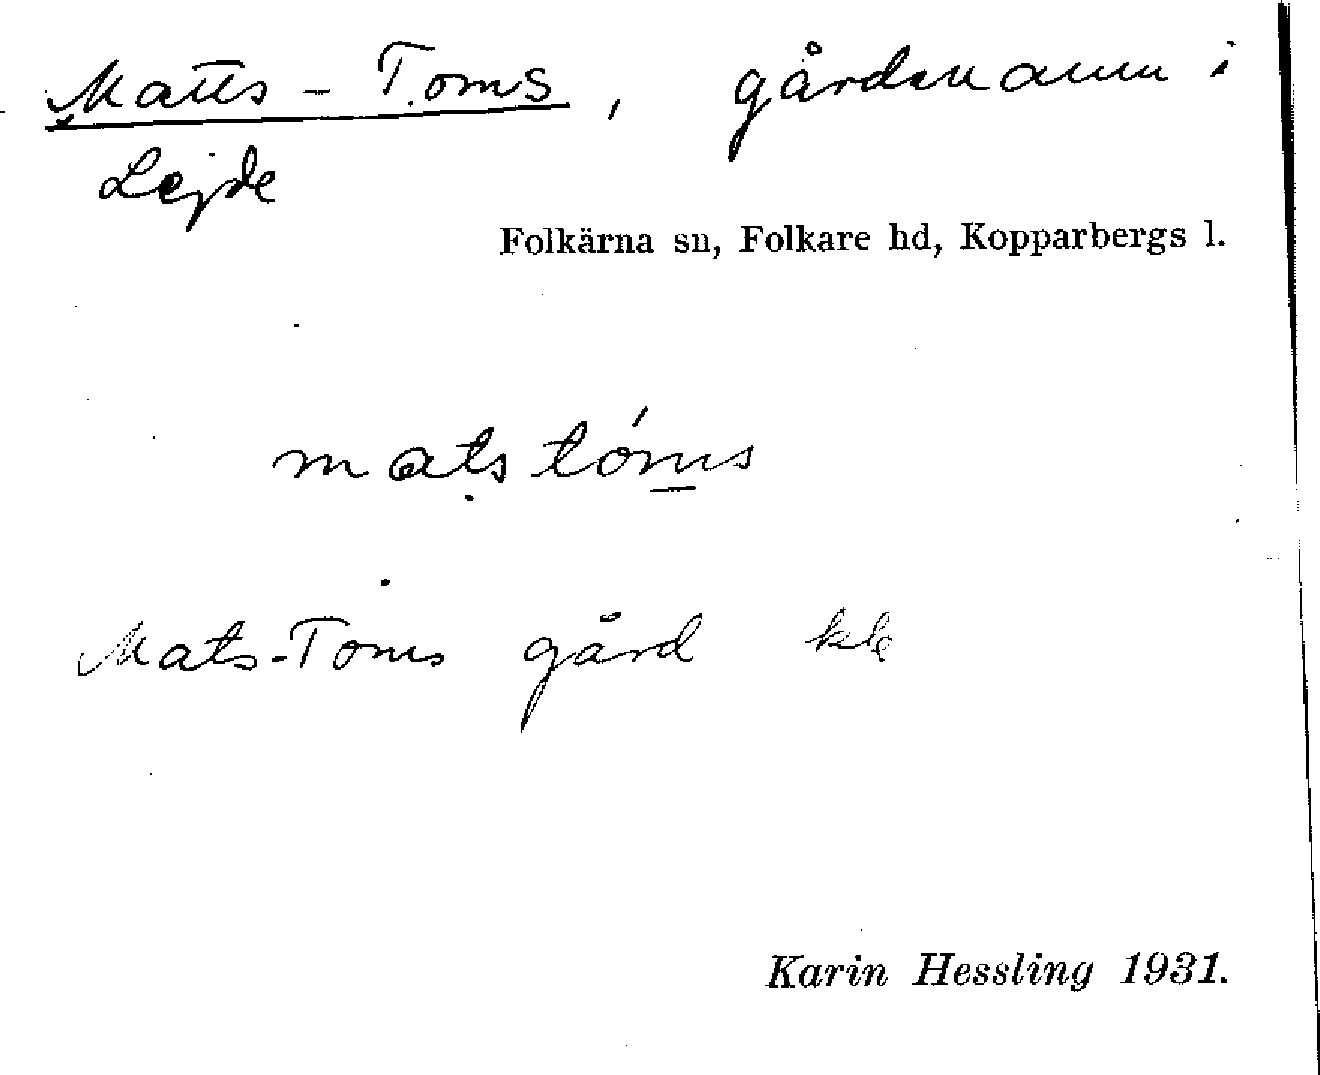 Matts-Toms, gårdsnamn i
Lejde
Folkärna sn, Folkare hd, Kopparbergs l.
matstóms
Mats-Toms gård
Karin Hessling 1931.